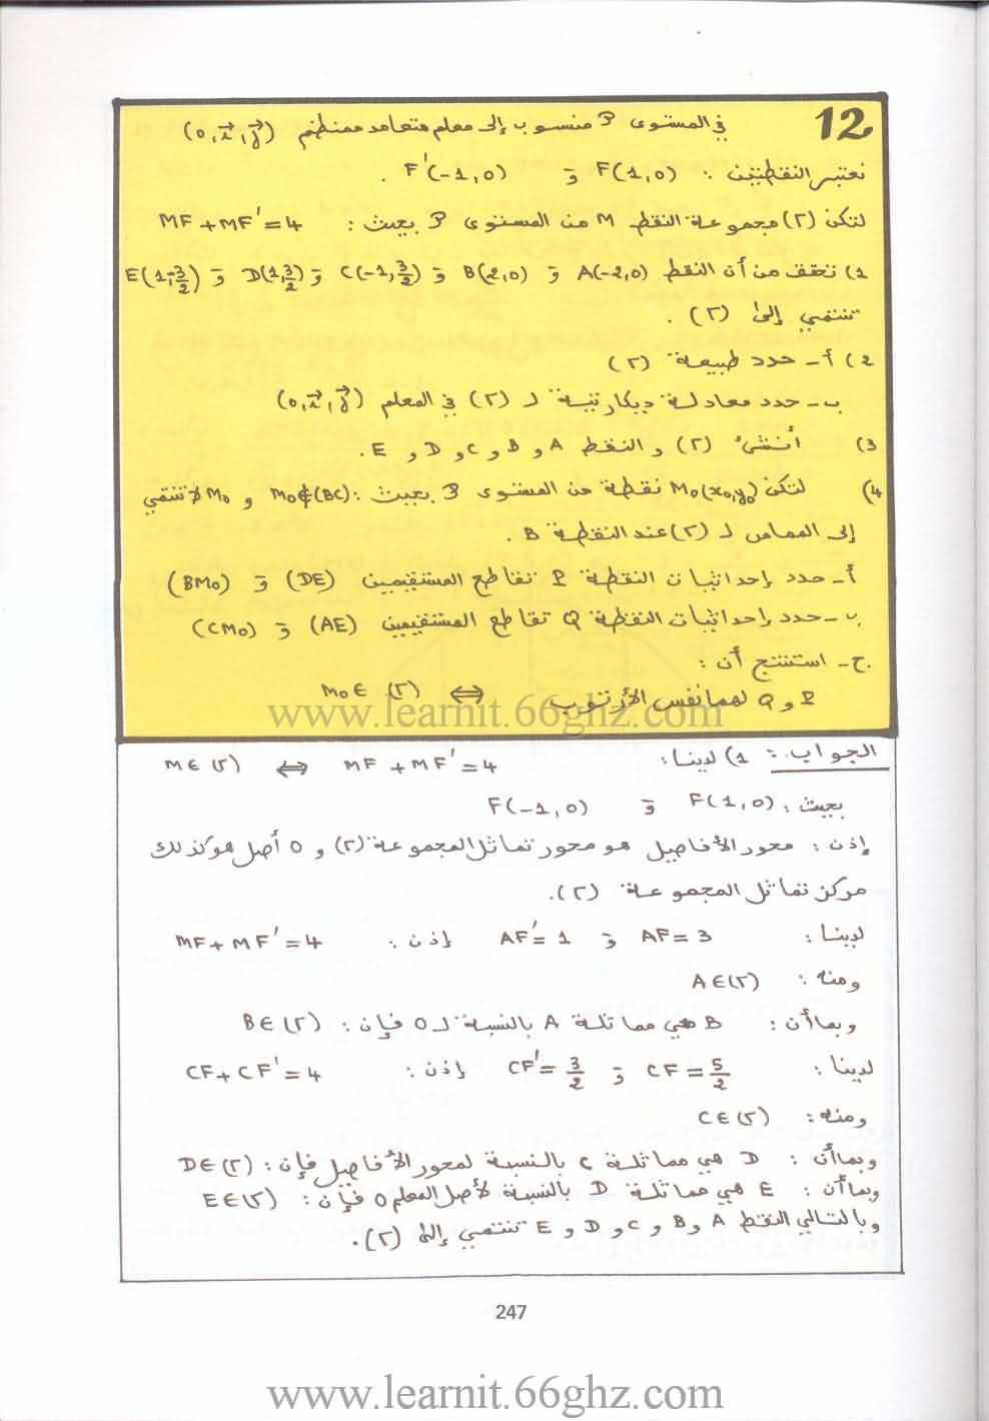 12 في المستوى P منسوب إلى معلم متعامد ممنظم (O, i⃗, j⃗)
نعتبر النقطتين : F(1,0) و F'(-1,0) .
لتكن (Γ) مجموعة النقط M من المستوى P بحيث : MF+MF'=4
1) تحقق من أن النقط A(-2,0) و B(2,0) و C(-1,3/2) و D(1,3/2) و E(1,-3/2)
تنتمي إلى (Γ) .
2) أ- حدد طبيعة (Γ)
ب- حدد معادلة ديكارتية لـ (Γ) في المعلم (O, i⃗, j⃗)
3) أنشئ (Γ) و النقط A و B و C و D و E .
4) لتكن M₀(x₀,y₀) نقطة من المستوى P بحيث : M₀∉(BC) و M₀ لا تنتمي
إلى المماس لـ (Γ) عند النقطة B .
أ- حدد إحداثيات النقطة P تقاطع المستقيمين (DE) و (BM₀)
ب- حدد إحداثيات النقطة Q تقاطع المستقيمين (AE) و (CM₀)
ج- استنتج أن :
P و Q لهما نفس الأرتوب ⇔ M₀∈ (Γ)
www.learnit.66ghz.com
الجواب : 1) لدينا : M∈(Γ) ⇔ MF+MF'=4
بحيث : F(1,0) و F(-1,0)
إذن : محور الأفاصيل هو محور تماثل المجموعة (Γ) و O أصل هو كذلك
مركز تماثل المجموعة (Γ).
لدينا : AF=3 و AF'=1 إذن : MF+MF'=4
ومنه : A∈(Γ)
وبما أن : B هي مماثلة A بالنسبة لـ O فإن : B∈(Γ)
لدينا : CF=5/2 و CF'=3/2 إذن : CF+CF'=4
ومنه : C∈(Γ)
وبما أن : D هي مماثلة C بالنسبة لمحور الأفاصيل فإن : D∈(Γ)
وبما أن : E هي مماثلة D بالنسبة لأصل المعلم O فإن : E∈(Γ)
وبالتالي النقط A و B و C و D و E تنتمي إلى (Γ).
247
www.learnit.66ghz.com